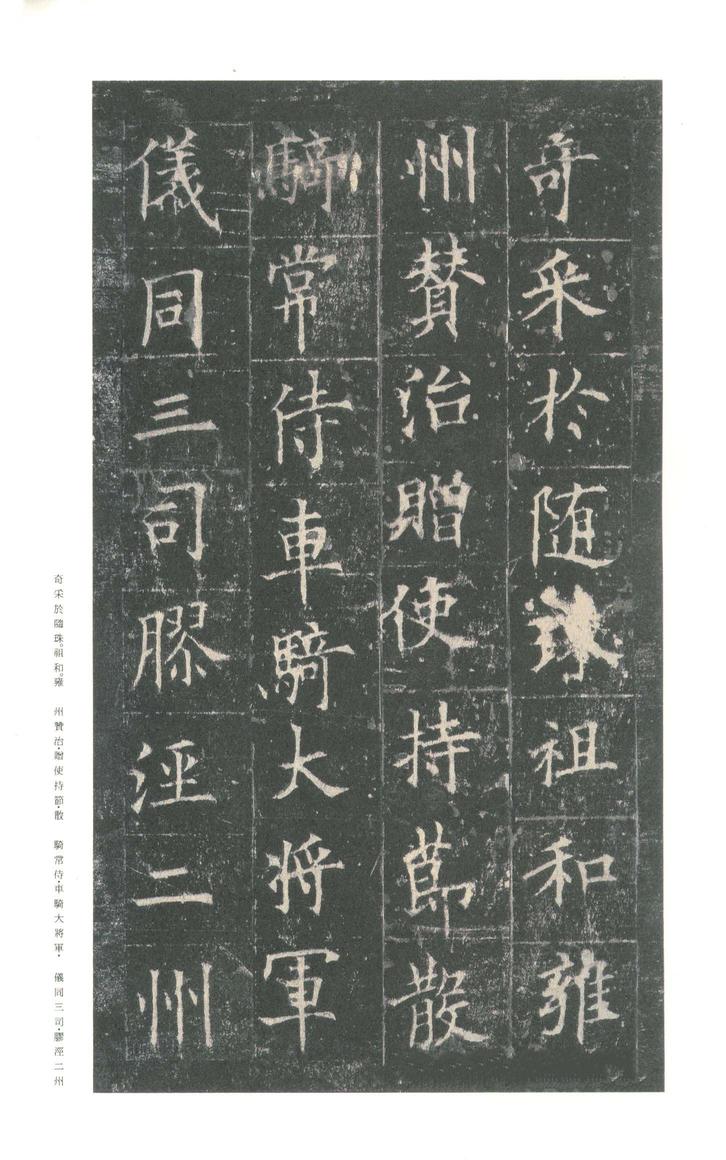 奇采於随珠祖和雍
州賛治贈使持節散
騎常侍車騎大将軍
儀同三司膠涇二州
奇采於隨珠。祖和。雍 州贊治・贈使持節・散 騎常侍・車騎大將軍・ 儀同三司・膠涇二州